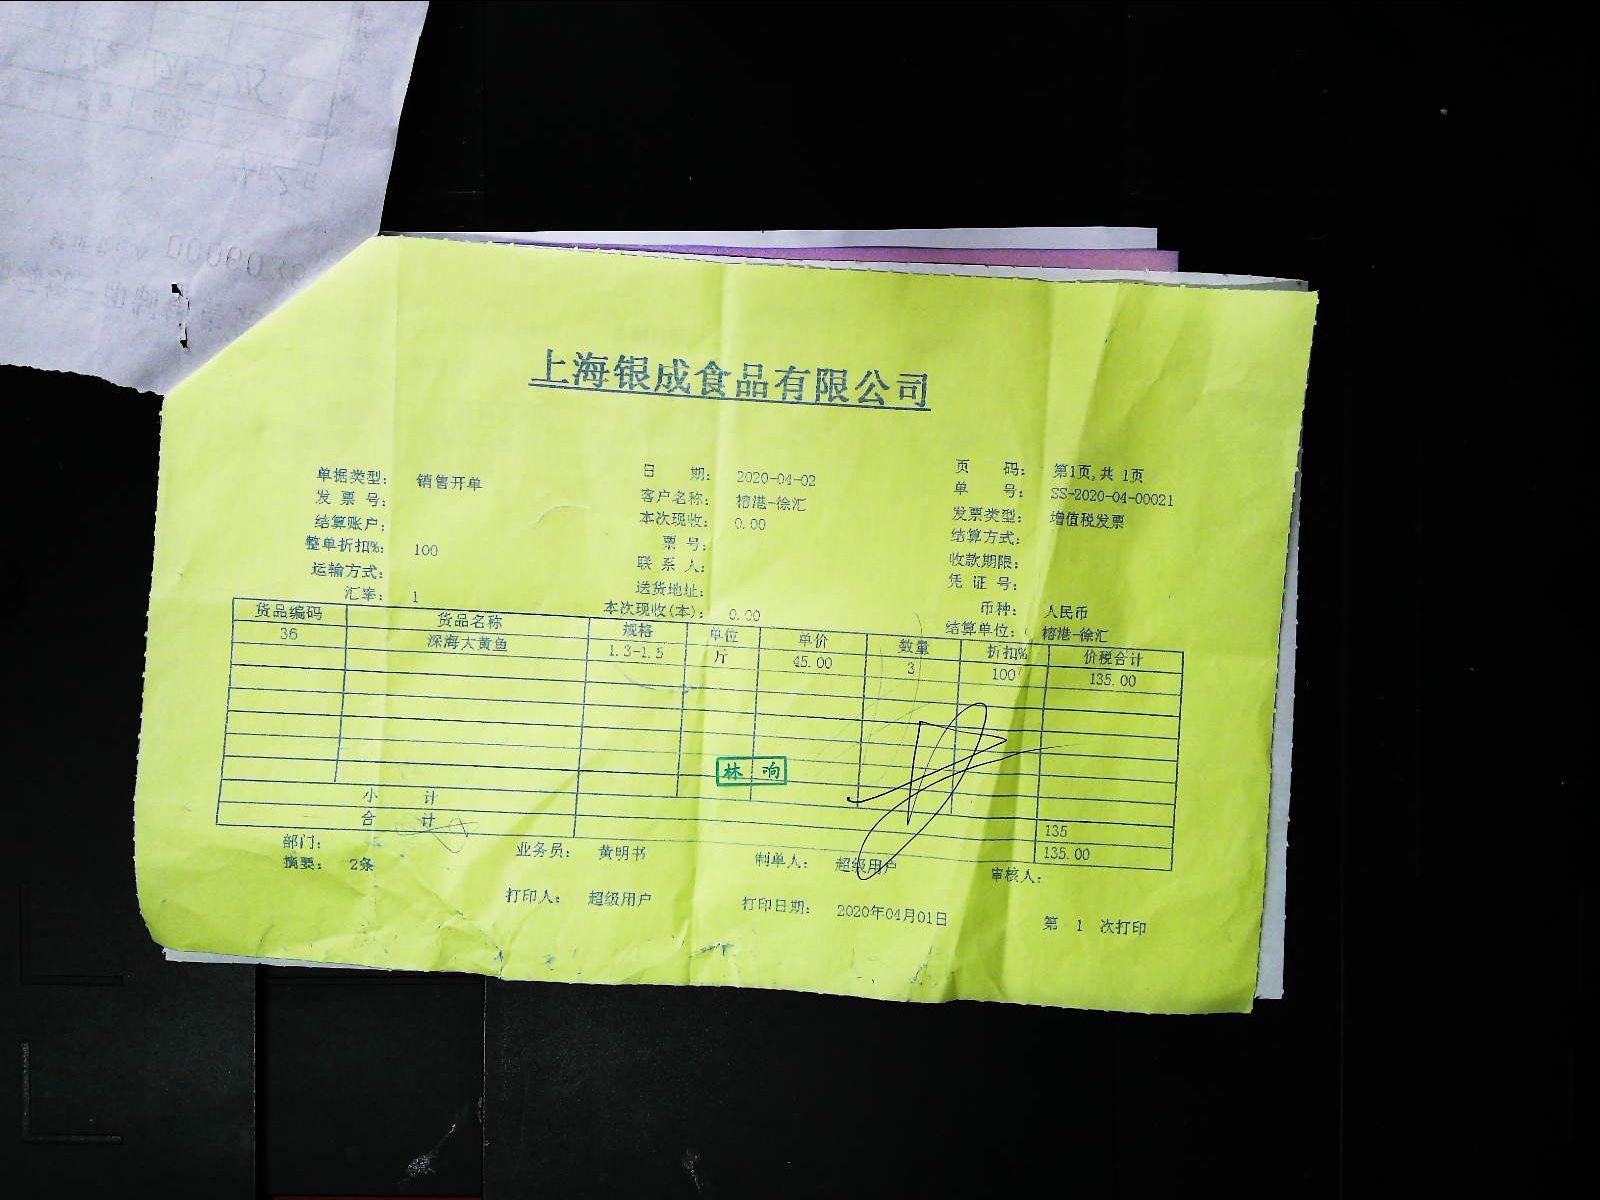 上海银成食品有限公司
单据类型: 销售开单 日 期: 2020-04-02 页 码: 第1页,共 1页
发 票 号: 客户名称: 榕港-徐汇 单 号: SS-2020-04-00021
结算账户: 本次现收: 0.00 发票类型: 增值税发票
整单折扣%: 100 票 号: 结算方式:
运输方式: 联 系 人: 收款期限:
汇率: 1 送货地址: 凭 证 号:
本次现收(本): 0.00 币种: 人民币
结算单位: 榕港-徐汇
货品编码 货品名称 规格 单位 单价 数量 折扣% 价税合计
36 深海大黄鱼 1.3-1.5 斤 45.00 3 100 135.00
林 响
小 计 135
合 计 135.00
部门: 业务员: 黄明书 制单人: 超级用户 审核人:
摘要: 2条
打印人: 超级用户 打印日期: 2020年04月01日 第 1 次打印